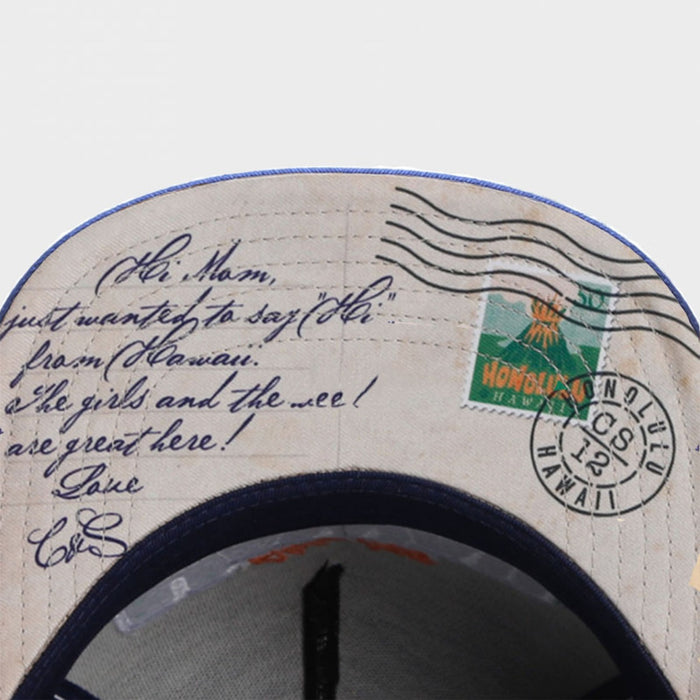 Hi Mom,
just wanted to say "Hi"
from Hawaii.
The girls and the
are great here!
Love
C&S
50
HONOLULU
HAWAII
HONOLULU
CS
12
HAWAII